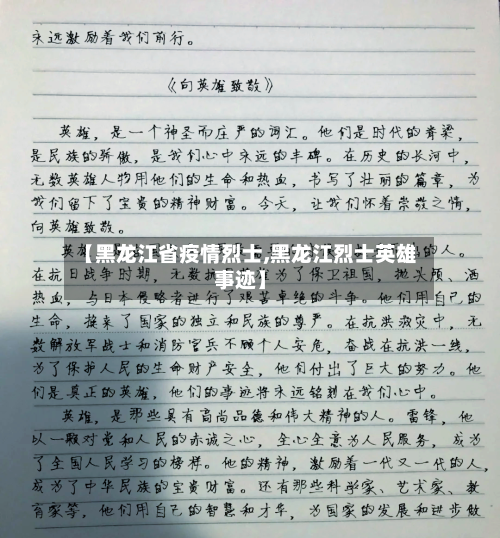 永远激励着我们前行。
《向英雄致敬》
英雄，是一个神圣而庄严的词汇。他们是时代的脊梁，
是民族的骄傲，是我们心中永远的丰碑。在历史的长河中，
无数英雄人物用他们的生命和热血，书写了壮丽的篇章，为
我们留下了宝贵的精神财富。今天，让我们怀着崇敬之情，
向英雄致敬。
英雄
的人。
【黑龙江省疫情烈士,黑龙江烈士英雄
事迹】
在抗日战争时期，无数抗 为了保卫祖国，抛头颅、洒
热血，与日本侵略者进行了艰苦卓绝的斗争。他们用自己的
生命，换来了国家的独立和民族的尊严。在抗洪救灾中，无
数解放军战士和消防官兵不顾个人安危，奋战在抗洪一线，
为了保护人民的生命财产安全，他们付出了巨大的努力。他
们是真正的英雄，他们的事迹将永远铭刻在我们心中。
英雄，是那些具有高尚品德和伟大精神的人。雷锋，他
以一颗对党和人民的赤诚之心，全心全意为人民服务，成为
了全国人民学习的榜样。他的精神，激励着一代又一代的人，
成为了中华民族的宝贵财富。还有那些科学家、艺术家、教
育家等，他们用自己的智慧和才华，为国家的发展和进步做